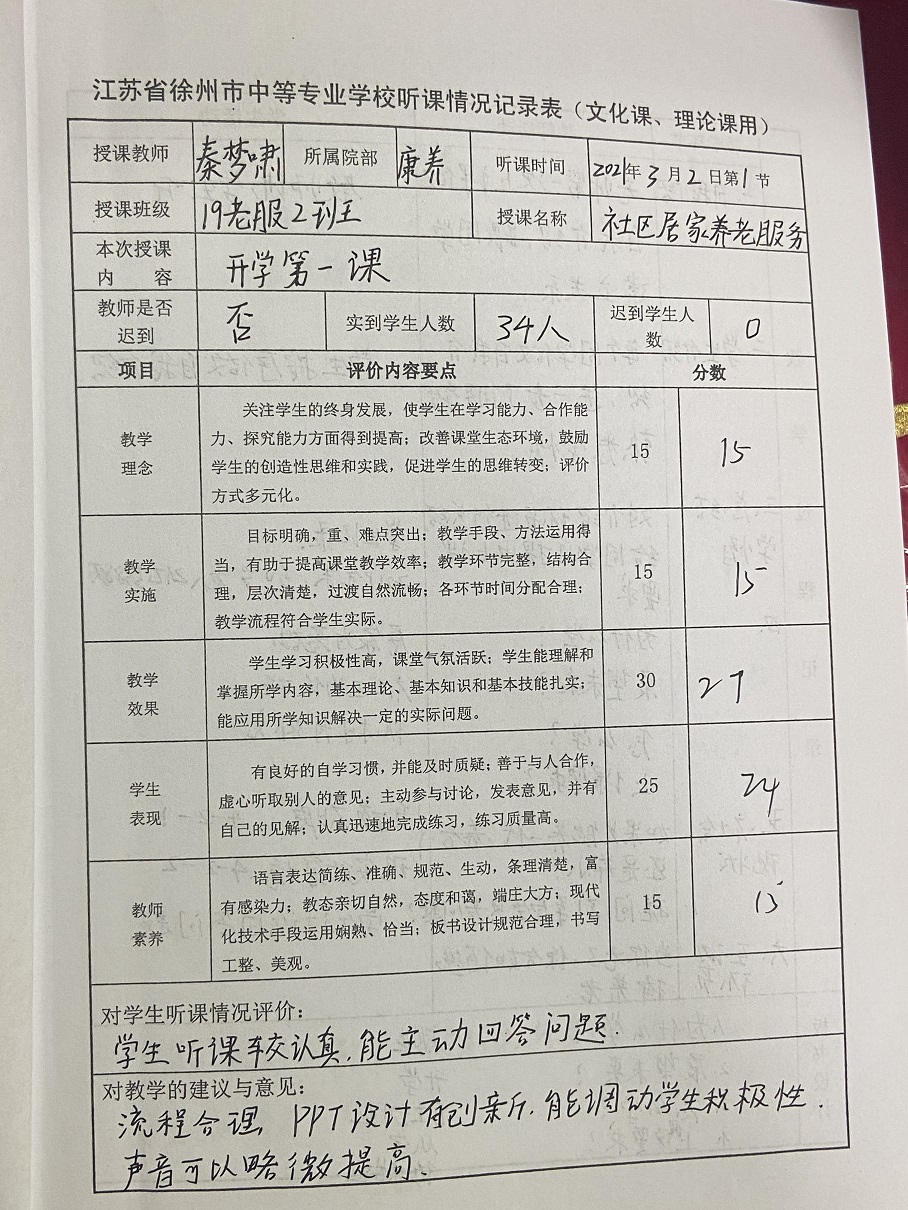 江苏省徐州市中等专业学校听课情况记录表（文化课、理论课用）
授课教师 秦梦啸 所属院部 康养 听课时间 2021年3月2日第1节
授课班级 19老服2班 授课名称 社区居家养老服务
本次授课
内 容 开学第一课
教师是否
迟到 否 实到学生人数 34人 迟到学生人
数 0
项目 评价内容要点 分数
教学
理念
关注学生的终身发展，使学生在学习能力、合作能
力、探究能力方面得到提高；改善课堂生态环境，鼓励
学生的创造性思维和实践，促进学生的思维转变；评价
方式多元化。
15 15
教学
实施
目标明确，重、难点突出；教学手段、方法运用得
当，有助于提高课堂教学效率；教学环节完整，结构合
理，层次清楚，过渡自然流畅；各环节时间分配合理；
教学流程符合学生实际。
15 15
教学
效果
学生学习积极性高，课堂气氛活跃；学生能理解和
掌握所学内容，基本理论、基本知识和基本技能扎实；
能应用所学知识解决一定的实际问题。
30 27
学生
表现
有良好的自学习惯，并能及时质疑；善于与人合作，
虚心听取别人的意见；主动参与讨论，发表意见，并有
自己的见解；认真迅速地完成练习，练习质量高。
25 24
教师
素养
语言表达简练、准确、规范、生动，条理清楚，富
有感染力；教态亲切自然，态度和蔼，端庄大方；现代
化技术手段运用娴熟、恰当；板书设计规范合理，书写
工整、美观。
15 15
对学生听课情况评价：
学生听课较认真，能主动回答问题.
对教学的建议与意见：
流程合理，PPT设计有创新，能调动学生积极性.
声音可以略微提高。